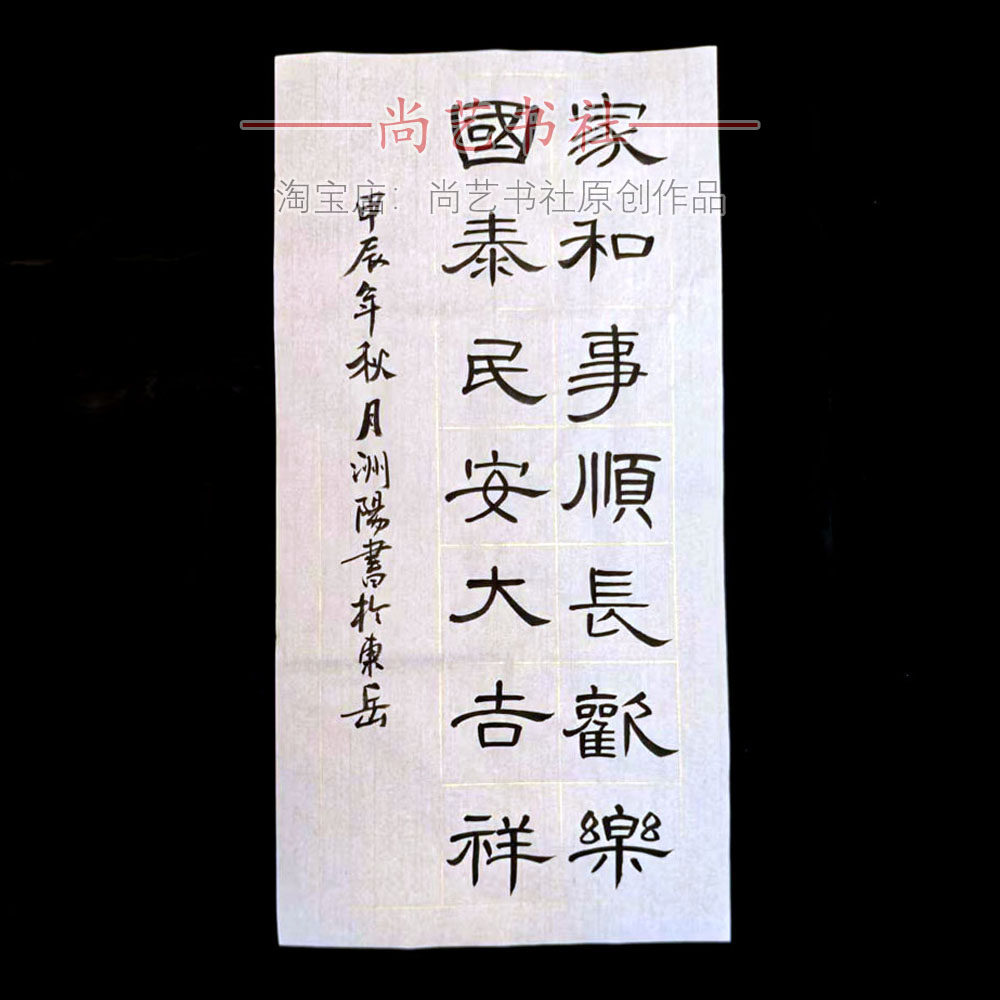 家和事順長歡樂
國泰民安大吉祥
甲辰年秋月洲陽書於東岳
尚艺书社
淘宝店：尚艺书社原创作品